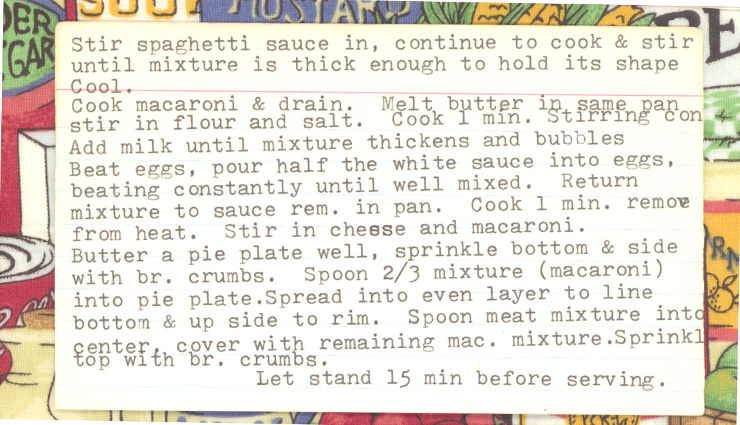 SOU
MUSTAR
DER
EGAR
PE
Stir spaghetti sauce in, continue to cook & stir
until mixture is thick enough to hold its shape
Cool.
Cook macaroni & drain. Melt butter in same pan
stir in flour and salt. Cook 1 min. Stirring con
Add milk until mixture thickens and bubbles
Beat eggs, pour half the white sauce into eggs,
beating constantly until well mixed. Return
mixture to sauce rem. in pan. Cook 1 min. remove
from heat. Stir in cheese and macaroni.
Butter a pie plate well, sprinkle bottom & side
with br. crumbs. Spoon 2/3 mixture (macaroni)
into pie plate.Spread into even layer to line
bottom & up side to rim. Spoon meat mixture into
center, cover with remaining mac. mixture.Sprinkl
top with br. crumbs.
Let stand 15 min before serving.